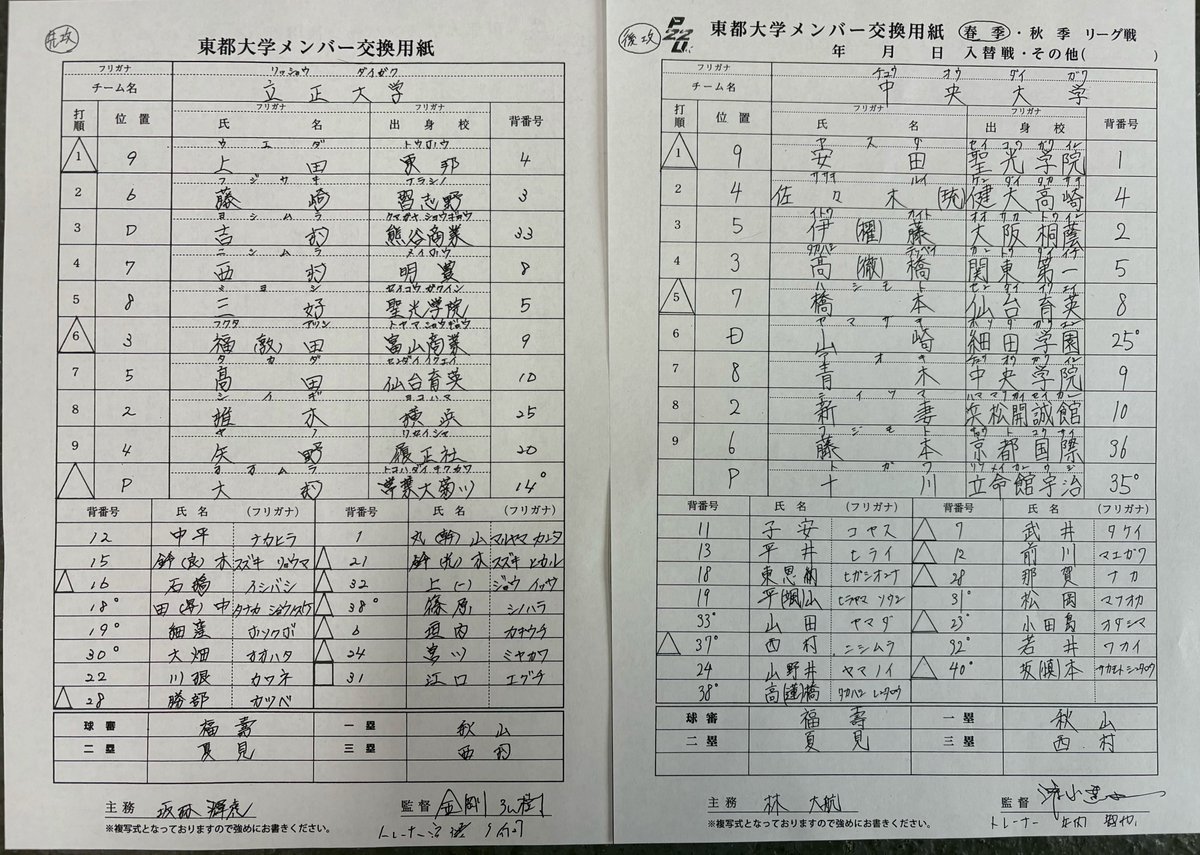 先攻
東都大学メンバー交換用紙
フリガナ リッショウ ダイガク
チーム名 立正大学
打順 位置 フリガナ 氏名 フリガナ 出身校 背番号
ウエダ トウホウ
1 9 上田 東邦 4
フジサキ ナラシノ
2 6 藤崎 習志野 3
ヨシムラ クマガヤショウギョウ
3 D 吉村 熊谷商業 33
ニシムラ メイホウ
4 7 西村 明豊 8
ミヨシ セイコウガクイン
5 8 三好 聖光学院 5
フクタ トヤマショウギョウ
6 3 福(敦)田 富山商業 9
タカダ センダイイクエイ
7 5 高田 仙台育英 10
シイギ ヨコハマ
8 2 椎木 横浜 25
ヤノ リセイシャ
9 4 矢野 履正社 20
オオムラ トコハダイキクガワ
P 大村 常葉大菊川 14°
背番号 氏名 (フリガナ) 背番号 氏名 (フリガナ)
12 中平 ナカヒラ 1 丸(幹)山 マルヤマ カンタ
15 鈴(良)木 スズキ リョウマ 21 鈴(光)木 スズキ ヒカル
16 石橋 イシバシ 32 上(一) ジョウ イッツウ
18° 田(昇)中 タナカ ショウスケ 38° 篠原 シノハラ
19° 細窪 ホソクボ 6 垣内 カキウチ
30° 大畑 オオハタ 24 宮川 ミヤカワ
22 川根 カワネ 31 江口 エグチ
28 勝部 カツベ
球審 福壽 一塁 秋山
二塁 夏見 三塁 西村
主務 監督 金剛 弘樹
※複写式となっておりますので強めにお書きください。
トレーナー
後攻
東都大学メンバー交換用紙 春季・秋季 リーグ戦
年 月 日 入替戦・その他( )
フリガナ チュウ オウ ダイ ガク
チーム名 中央大学
打順 位置 フリガナ 氏名 フリガナ 出身校 背番号
ヤスダ セイコウガクイン
1 9 安田 聖光学院 1
ササキ ルイ ケンダイタカサキ
2 4 佐々木(琉) 健大高崎 4
イトウ カイト オオサカトウイン
3 5 伊(櫂)藤 大阪桐蔭 2
タカハシ テッペイ カントウダイイチ
4 3 高(徹)橋 関東第一 5
ハシモト センダイイクエイ
5 7 橋本 仙台育英 8
ヤマサキ ホソダガクエン
6 D 山崎 細田学園 25°
アオキ チュウオウガクイン
7 8 青木 中央学院 9
ニイツマ ハママツカイセイカン
8 2 新妻 浜松開誠館 10
フジモト キョウトコクサイ
9 6 藤本 京都国際 36
トガワ リツメイカンウジ
P 十川 立命館宇治 35°
背番号 氏名 (フリガナ) 背番号 氏名 (フリガナ)
11 子安 コヤス 7 武井 タケイ
13 平井 ヒライ 12 前川 マエガワ
18 東恩納 ヒガシオンナ 28 那賀 ナカ
19 平(颯)山 ヒラヤマ ソウン 31° 松岡 マツオカ
33° 山田 ヤマダ 23° 小田島 オダシマ
37° 西村 ニシムラ 92° 若井 ワカイ
24 山野井 ヤマノイ 40° 坂(慎)本 サカモト シンタロウ
38° 高(連)橋 タカハシ レンタロウ
球審 福壽 一塁 秋山
二塁 夏見 三塁 西村
主務 林 大航 監督
※複写式となっておりますので強めにお書きください。
トレーナー